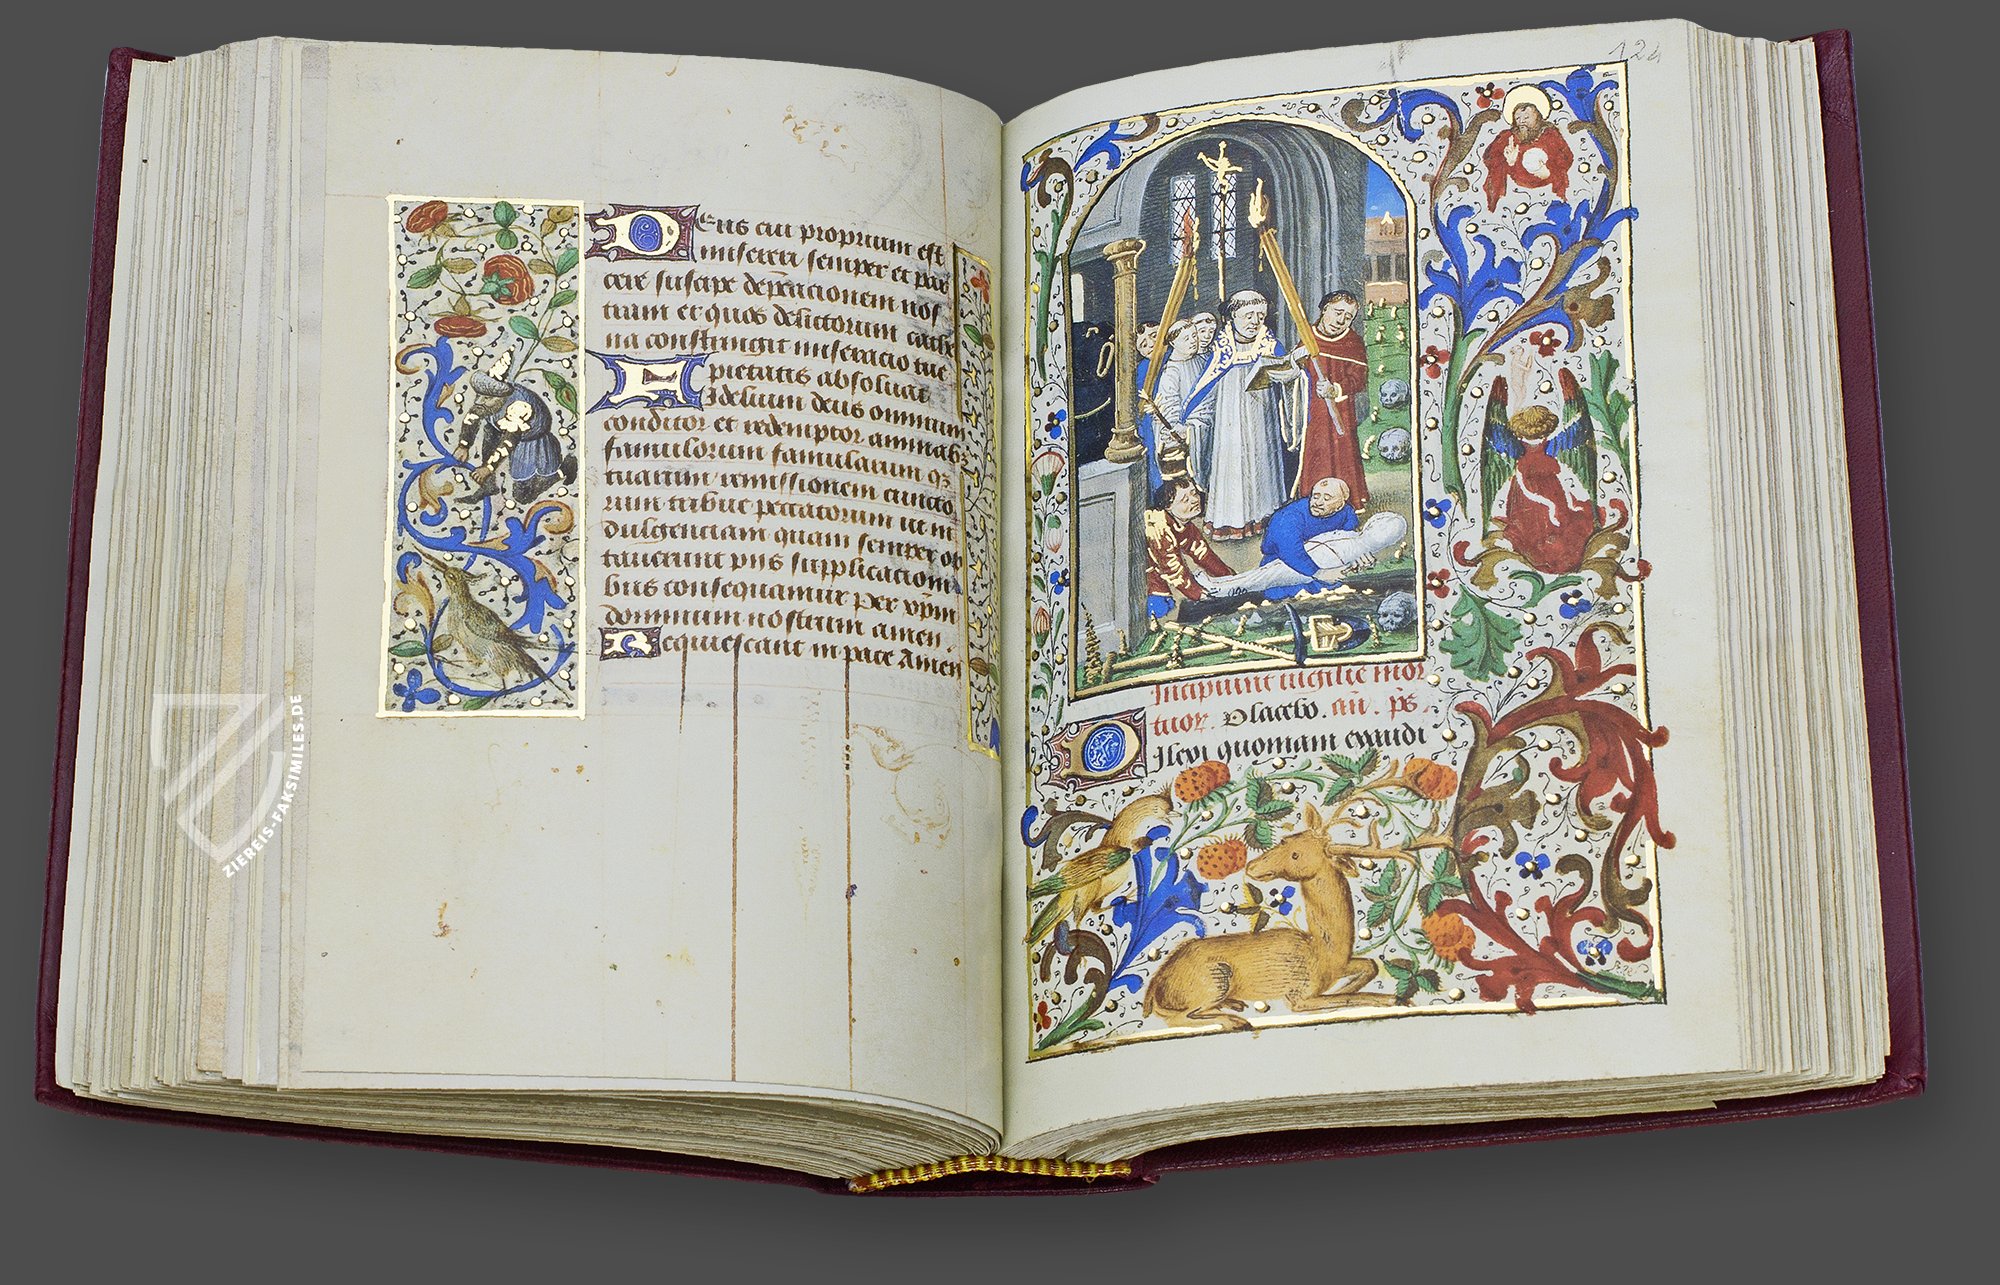 Eus cui proprium est
misereri semper et par
cere suscipe deprecacionem nos
tram et quos delictorum cathe
na constringit miseracio tue
pietatis absoluat
Fidelium deus omnium
conditor et redemptor animabꝫ
famulorum famularum qꝫ
tuarum remissionem cuncto
rum tribue peccatorum ut in
dulgenciam quam semper op
tauerunt piis supplicacioni
bus consequamur Per xp̄m
dominum nostrum amen .
Requiescant in pace Amen
ZIEREIS-FAKSIMILES.DE
124
Incipiunt vigilie mor
tuor. Placebo. añ. p̄s
Dilexi quoniam exaudi